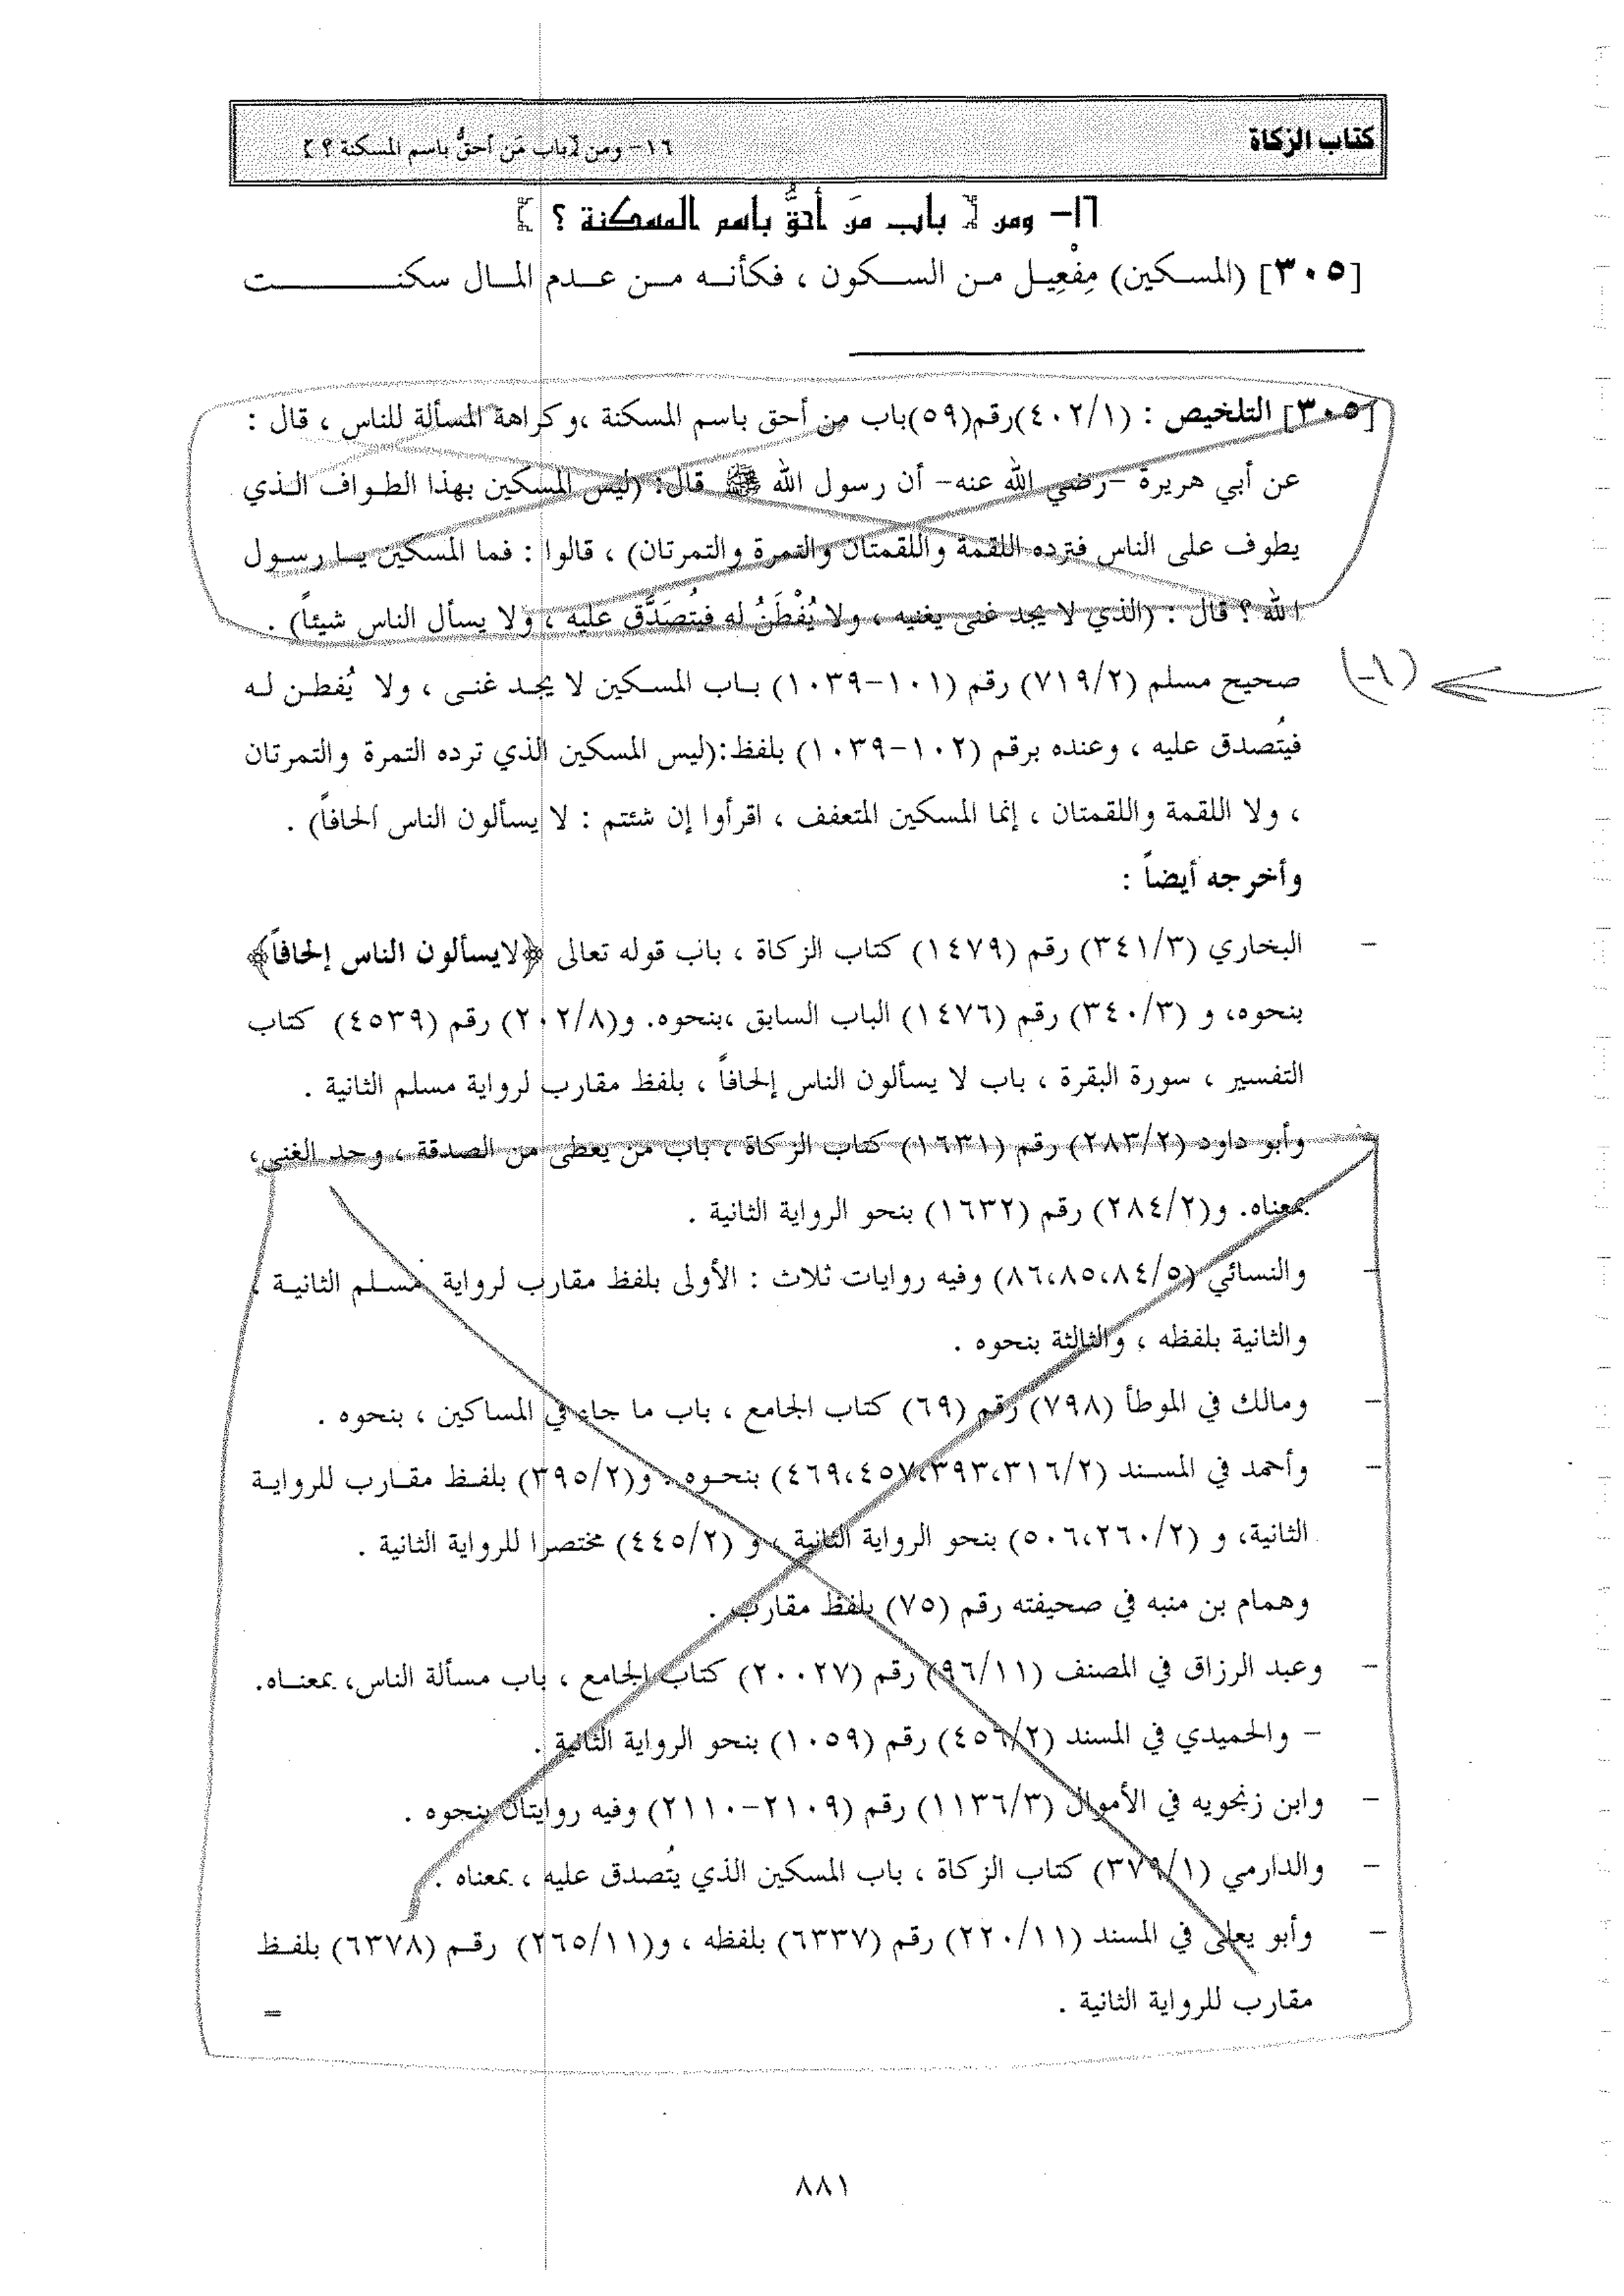 كتاب الزكاة
١٦- ومن [باب مَن أحقُّ باسم المسكنة ؟ ]
١٦- ومن [ باب مَن أحقُّ باسم المسكنة ؟ ]
[٣٠٥] (المسكين) مِفْعِيل من السكون ، فكأنه من عدم المال سكنت
[٣٠٥] التلخيص : (٤٠٢/١)رقم(٥٩)باب من أحق باسم المسكنة ،وكراهة المسألة للناس ، قال :
عن أبي هريرة -رضي الله عنه- أن رسول الله ﷺ قال: (ليس المسكين بهذا الطواف الذي
يطوف على الناس فترده اللقمة واللقمتان والتمرة والتمرتان) ، قالوا : فما المسكين يا رسول
الله ؟ قال : (الذي لا يجد غنى يغنيه ، ولا يُفْطَنُ له فيُتصَدَّق عليه ، ولا يسأل الناس شيئاً) .
(١-)
صحيح مسلم (٧١٩/٢) رقم (١٠١-١٠٣٩) باب المسكين لا يجد غنى ، ولا يُفطن له
فيُتصدق عليه ، وعنده برقم (١٠٢-١٠٣٩) بلفظ:(ليس المسكين الذي ترده التمرة والتمرتان
، ولا اللقمة واللقمتان ، إنما المسكين المتعفف ، اقرأوا إن شئتم : لا يسألون الناس الحافاً) .
وأخرجه أيضاً :
- البخاري (٣٤١/٣) رقم (١٤٧٩) كتاب الزكاة ، باب قوله تعالى ﴿لايسألون الناس إلحافاً﴾
بنحوه، و (٣٤٠/٣) رقم (١٤٧٦) الباب السابق ،بنحوه. و(٢٠٢/٨) رقم (٤٥٣٩) كتاب
التفسير ، سورة البقرة ، باب لا يسألون الناس إلحافاً ، بلفظ مقارب لرواية مسلم الثانية .
وأبو داود (٢٨٣/٢) رقم (١٦٣١) كتاب الزكاة ، باب من يعطى من الصدقة ، وحد الغنى،
بمعناه. و(٢٨٤/٢) رقم (١٦٣٢) بنحو الرواية الثانية .
- والنسائي (٨٦،٨٥،٨٤/٥) وفيه روايات ثلاث : الأولى بلفظ مقارب لرواية مسلم الثانية ،
والثانية بلفظه ، والثالثة بنحوه .
- ومالك في الموطأ (٧٩٨) رقم (٦٩) كتاب الجامع ، باب ما جاء في المساكين ، بنحوه .
- وأحمد في المسند (٤٦٩،٤٥٧،٣٩٣،٣١٦/٢) بنحوه . و(٣٩٥/٢) بلفظ مقارب للرواية
الثانية، و (٥٠٦،٢٦٠/٢) بنحو الرواية الثانية ، و (٤٤٥/٢) مختصرا للرواية الثانية .
وهمام بن منبه في صحيفته رقم (٧٥) بلفظ مقارب .
- وعبد الرزاق في المصنف (٩٦/١١) رقم (٢٠٠٢٧) كتاب الجامع ، باب مسألة الناس، بمعناه.
- والحميدي في المسند (٤٥٦/٢) رقم (١٠٥٩) بنحو الرواية الثانية .
- وابن زنجويه في الأموال (١١٣٦/٣) رقم (٢١٠٩-٢١١٠) وفيه روايتان بنحوه .
- والدارمي (٣٧٩/١) كتاب الزكاة ، باب المسكين الذي يُتصدق عليه ، بمعناه .
- وأبو يعلى في المسند (٢٢٠/١١) رقم (٦٣٣٧) بلفظه ، و(٢٦٥/١١) رقم (٦٣٧٨) بلفظ
مقارب للرواية الثانية .
=
٨٨١